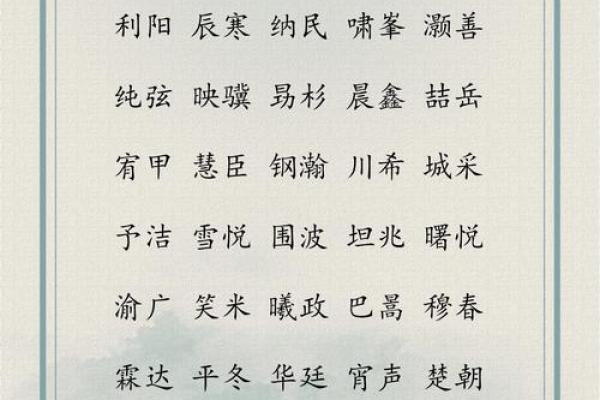 利阳 辰寒 纳民 啸峯 灏善
纯弦 映骥 勗杉 晨鑫 喆岳
宥甲 慧臣 钢瀚 川希 城采
予洁 雪悦 围波 坦兆 曙悦
渝广 笑米 曦政 巴暠 穆春
霖达 平冬 华廷 宵声 楚朝